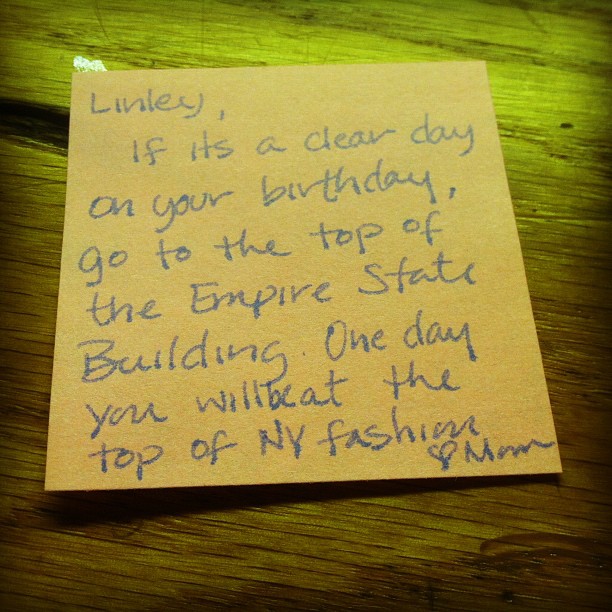 Linley,
If its a clear day
on your birthday,
go to the top of
the Empire State
Building. One day
you will be at the
top of NY fashion
♡ Mom